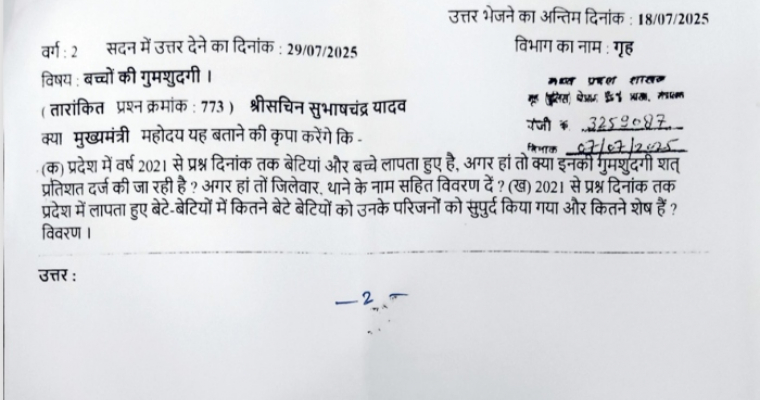 उत्तर भेजने का अन्तिम दिनांक : 18/07/2025
वर्ग : 2 सदन में उत्तर देने का दिनांक : 29/07/2025
विभाग का नाम : गृह
विषय : बच्चों की गुमशुदगी ।
( तारांकित प्रश्न क्रमांक : 773 ) श्रीसचिन सुभाषचंद्र यादव
पंजी क्र. 3259087
दिनांक 07/07/2025
क्या मुख्यमंत्री महोदय यह बताने की कृपा करेंगे कि -
(क) प्रदेश में वर्ष 2021 से प्रश्न दिनांक तक बेटियां और बच्चे लापता हुए है, अगर हां तो क्या इनकी गुमशुदगी शत्
प्रतिशत दर्ज की जा रही है ? अगर हां तों जिलेवार, थाने के नाम सहित विवरण दें ? (ख) 2021 से प्रश्न दिनांक तक
प्रदेश में लापता हुए बेटे-बेटियों में कितने बेटे बेटियों को उनके परिजनों को सुपुर्द किया गया और कितने शेष हैं ?
विवरण ।
उत्तर :
- 2 -